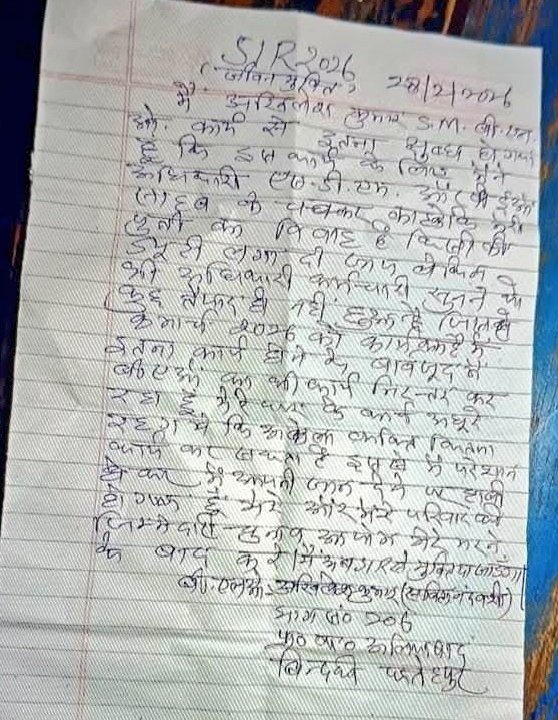 SIR 2026
(जीवन मुक्ति) 28/2/2026
मैं अखिलेश कुमार S.M. बी.एल.
ओ. कार्य से इतना क्षुब्ध हो गया
हूँ कि इस कार्य के लिये मैंने
अधिकारी एस.डी.एम. और
साहब के चक्कर काटे कि मेरी
पुत्री का विवाह है किसी की
ड्यूटी लगा दी जाय लेकिन
भी अधिकारी कर्मचारी सुनने को
कुछ तैयार ही नहीं
8 मार्च 2026 को कार्यक्रम है मैं
इतना कार्य होने के बावजूद मैं
बीएलओ का भी कार्य निरन्तर कर
रहा हूँ मेरे घर के कार्य अधूरे
कि अकेला व्यक्ति कितना
कार्य कर सकता है इससे मैं परेशान
होकर मैं अपनी जान देने पर हावी
हो गया हूँ मेरे और मेरे परिवार की
जिम्मेदारी चुनाव आयोग मेरे मरने
के बाद करे। मैं
बी.एलओ. अखिलेश कुमार
भाग सं० 206
प्रा० पा० अलियाबाद
बिन्दकी फतेहपुर